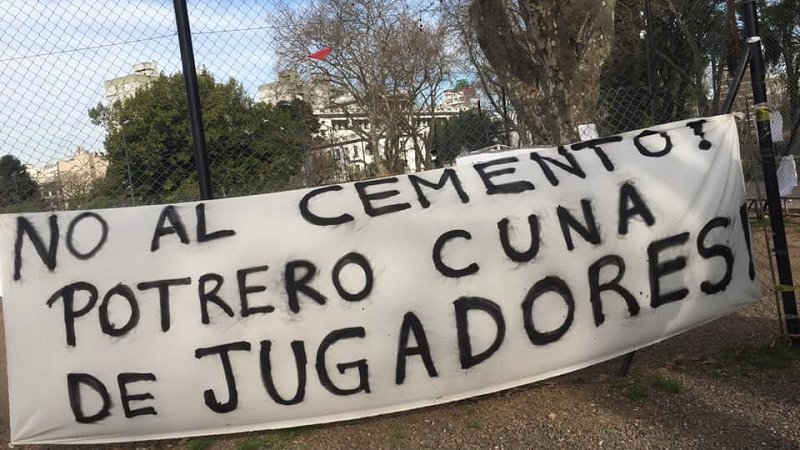 NO AL CEMENTO!
POTRERO CUNA
DE JUGADORES!